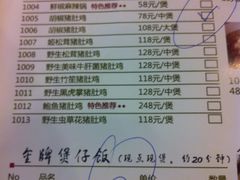 1004 鲜椒麻辣锅 特色推荐★★ 58元/煲
1005 胡椒猪肚鸡 78元/中煲
1006 胡椒猪肚鸡 108元/大煲
1007 姬松茸猪肚鸡 118元/煲
1008 野生松茸猪肚鸡 128元/煲
1009 野生美味牛肝菌猪肚鸡 118元/煲
1010 野生竹笙猪肚鸡 118元/煲
1011 野生黑虎掌猪肚鸡 118元/煲
1012 鲍鱼猪肚鸡 特色推荐★★ 248元/煲
1013 野生虫草花猪肚鸡 118元/煲
金牌煲仔饭(现点现煲，约20分钟)
No. 品名 单价